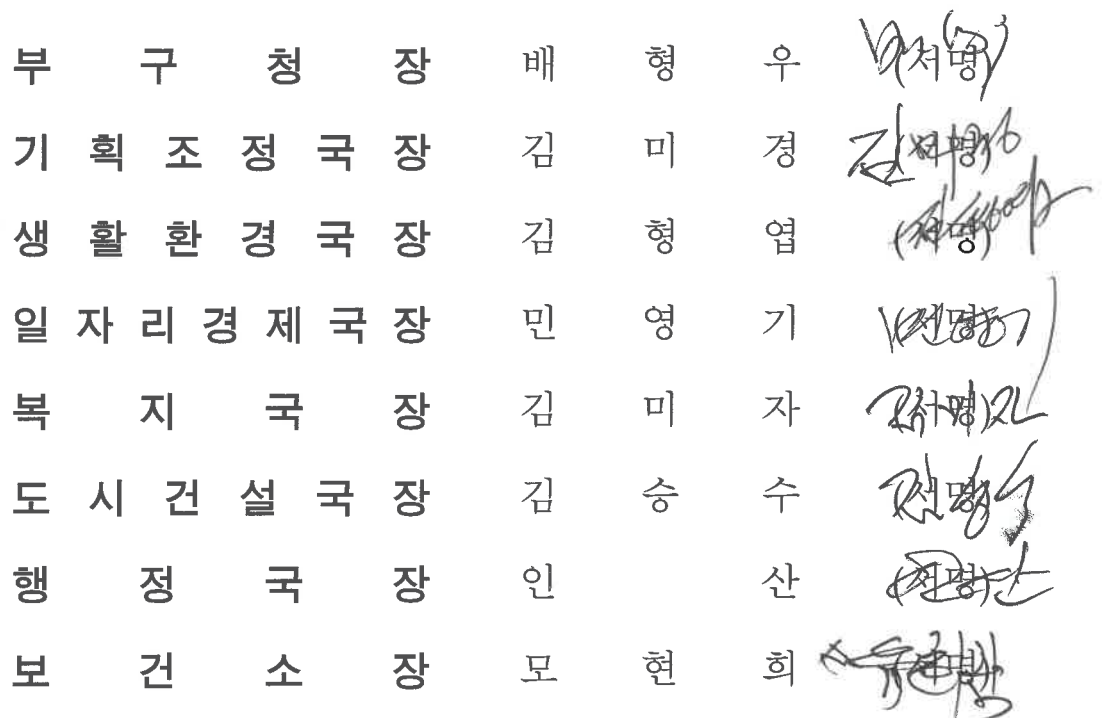 부구청장 배형우 (서명)
기획조정국장 김미경 (서명)
생활환경국장 김형엽 (서명)
일자리경제국장 민영기 (서명)
복지국장 김미자 (서명)
도시건설국장 김승수 (서명)
행정국장 인산 (서명)
보건소장 모현희 (서명)